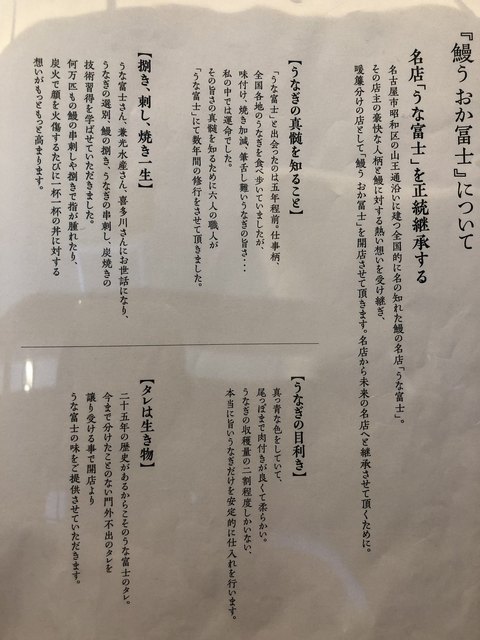 『鰻う おか冨士』について
名店「うな富士」を正統継承する
名古屋市昭和区の山王通沿いに建つ全国的に名の知れた鰻の名店「うな富士」。
その店主の豪快な人柄と鰻に対する熱い想いを受け継ぎ、
暖簾分けの店として「鰻う おか冨士」を開店させて頂きます。名店から未来の名店へと継承させて頂くために。
【うなぎの真髄を知ること】
「うな富士」と出会ったのは五年程前。仕事柄、
全国各地のうなぎを食べ歩いていましたが、
味付け、焼き加減、筆舌し難いうなぎの旨さ・・・
私の中では運命でした。
その旨さの真髄を知るために六人の職人が
「うな富士」にて数年間の修行をさせて頂きました。
【捌き、刺し、焼き一生】
うな富士さん、兼光水産さん、喜多川さんにお世話になり、
うなぎの選別、鰻の捌き、うなぎの串刺し、炭焼きの
技術習得を学ばせていただきました。
何万匹もの鰻の串刺しや捌きで指が腫れたり、
炭火で顔を火傷するたびに一杯一杯の丼に対する
想いがもっともっと高まります。
【うなぎの目利き】
真っ青な色をしていて、
尾っぽまで肉付きが良くて柔らかい。
うなぎの収穫量の二割程度しかいない、
本当に旨いうなぎだけを安定的に仕入れを行います。
【タレは生き物】
二十五年の歴史があるからこそのうな富士のタレ。
今まで分けたことのない門外不出のタレを
譲り受ける事で開店より
うな富士の味をご提供させていただきます。